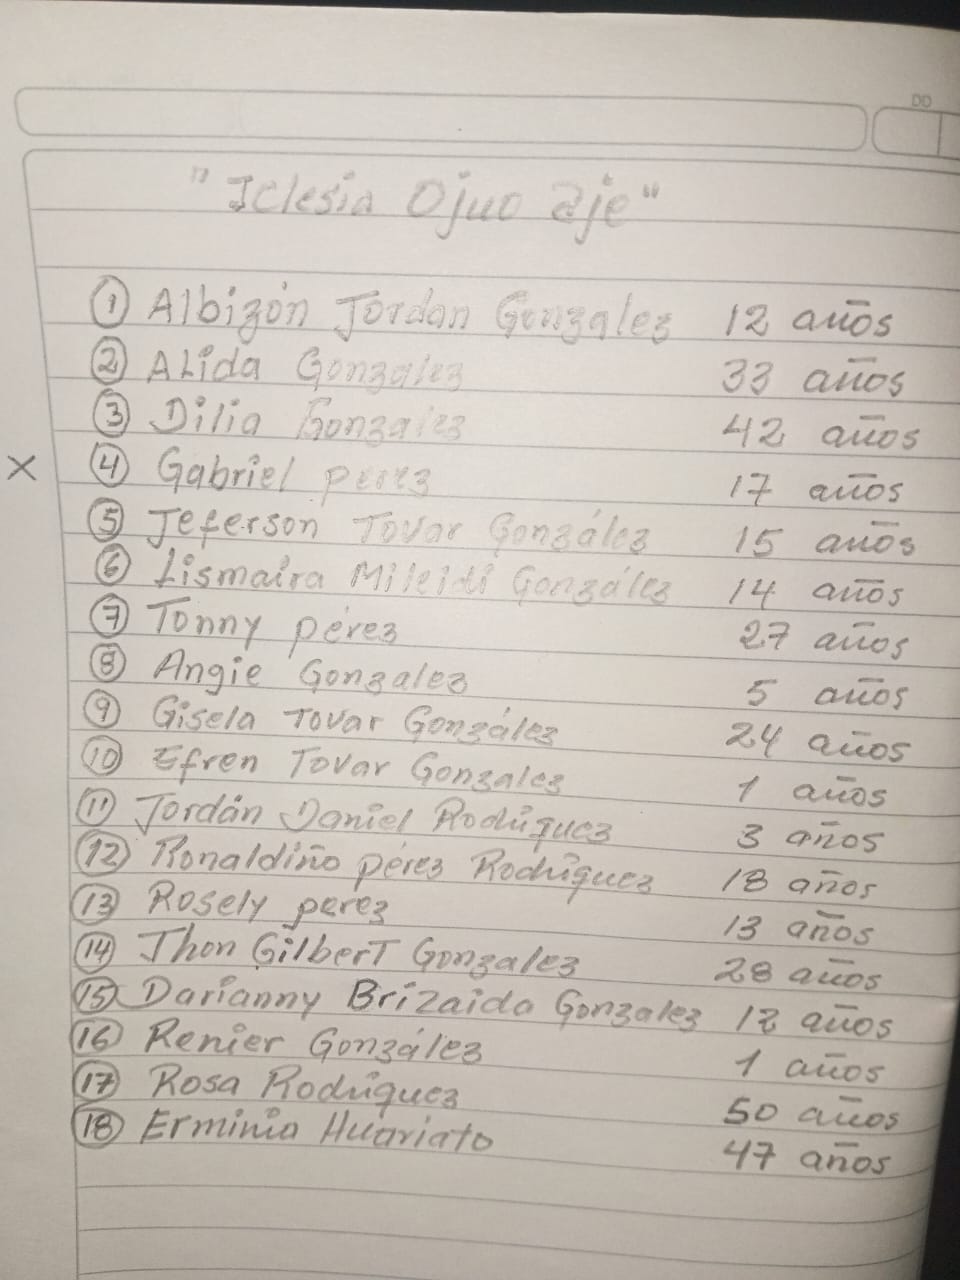 DD
"Iclesia Ojuo aje"
① Albizón Jordan Gonzalez 12 años
② ALida Gonzalez 33 años
③ Dilia Gonzalez 42 años
X ④ Gabriel perez 17 años
⑤ Jeferson Tovar González 15 años
⑥ Lismaira Mileidi González 14 años
⑦ Tonny pérez 27 años
⑧ Angie Gonzalez 5 años
⑨ Gisela Tovar González 24 años
⑩ Efren Tovar Gonzalez 1 años
⑪ Jordán Daniel Rodríguez 3 años
⑫ Ronaldiño pérez Rodríguez 18 años
⑬ Rosely perez 13 años
⑭ Jhon GilberT Gonzalez 28 años
⑮ Darianny Brizaida Gonzalez 12 años
⑯ Renier González 1 años
⑰ Rosa Rodríguez 50 años
⑱ Erminia Huariato 47 años